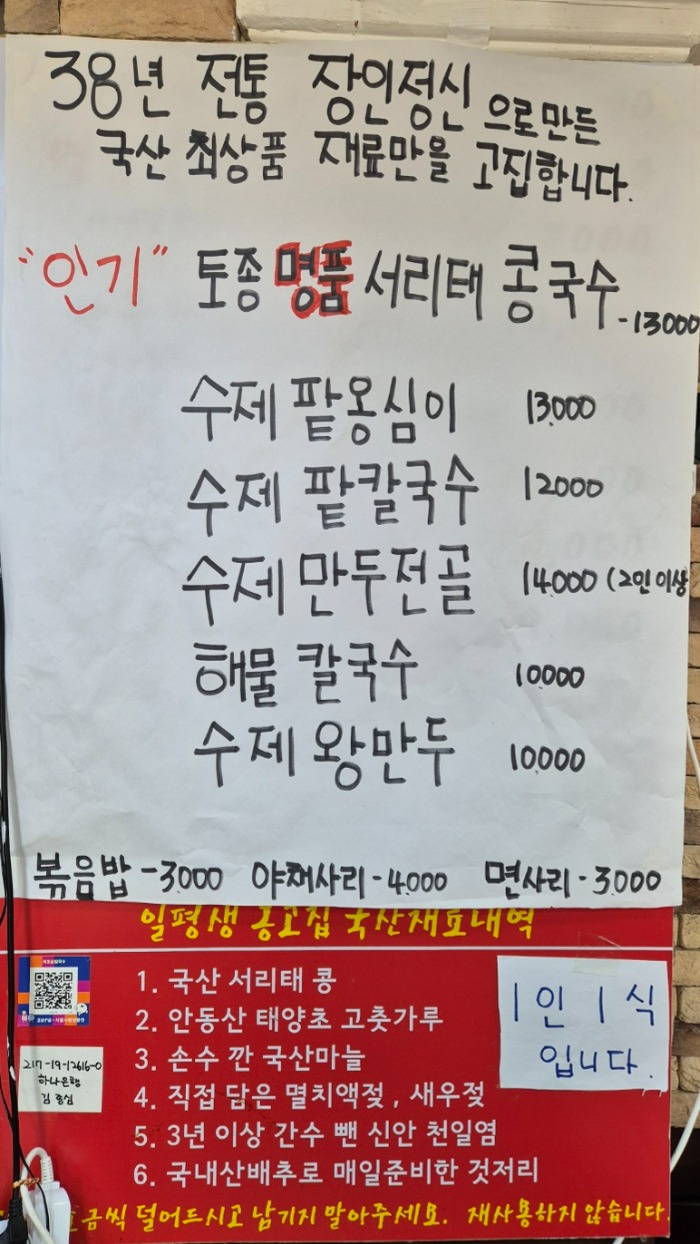 38년 전통 장인정신으로만든
국산 최상품 재료만을 고집합니다.
"인기" 토종 명품 서리태 콩국수 -13000
수제 팥옹심이 13.000
수제 팥칼국수 12000
수제 만두전골 14.000 (2인 이상
해물 칼국수 10.000
수제 왕만두 10.000
볶음밥 -3.000 야채사리 -4.000 면사리 -3.000
일평생 옹고집 국산재료내역
1. 국산 서리태 콩
2. 안동산 태양초 고춧가루
3. 손수 깐 국산마늘
4. 직접 담은 멸치액젖, 새우젖
5. 3년 이상 간수 뺀 신안 천일염
6. 국내산배추로 매일준비한 것저리
1인 1식
입니다.
217-19-12616-0
하나은행
김 종심
금씩 덜어드시고 남기지 말아주세요. 재사용하지 않습니다.